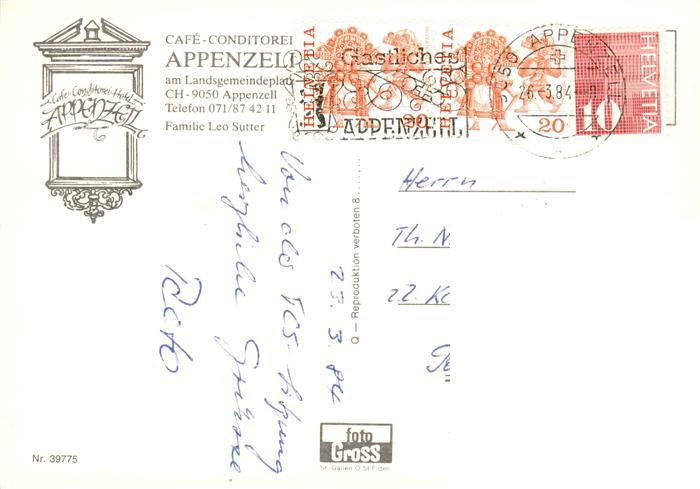 CAFÉ-CONDITOREI
APPENZELL
am Landsgemeindeplatz
CH-9050 Appenzell
Telefon 071/87 42 11
Familie Leo Sutter
Café-Conditorei-Hotel
APPENZELL
HELVETIA
20
HELVETIA
20
HELVETIA
10
Gastliches
APPENZELL
9050 APPENZELL
26.-3.84
23. 3. 84
Von der TCS-Sitzung
herzliche Grüsse
Reto
Herrn
Th.
22.
Q — Reproduktion verboten 8
foto
Gross
St. Gallen O St Fiden
Nr. 39775